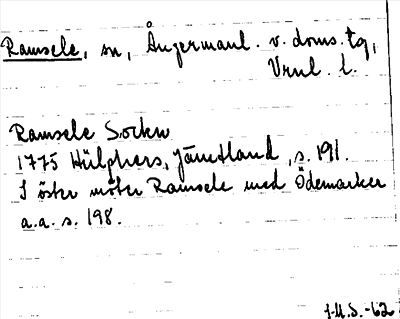 Ramsele, sn, Ångermanl. v. doms. tg,
Vrnl. l.
Ramsele Sockn
1775 Hülphers, Jämtland, s. 191.
I öster möter Ramsele med Ödemarker
a.a. s. 198.
J.M.S.-62